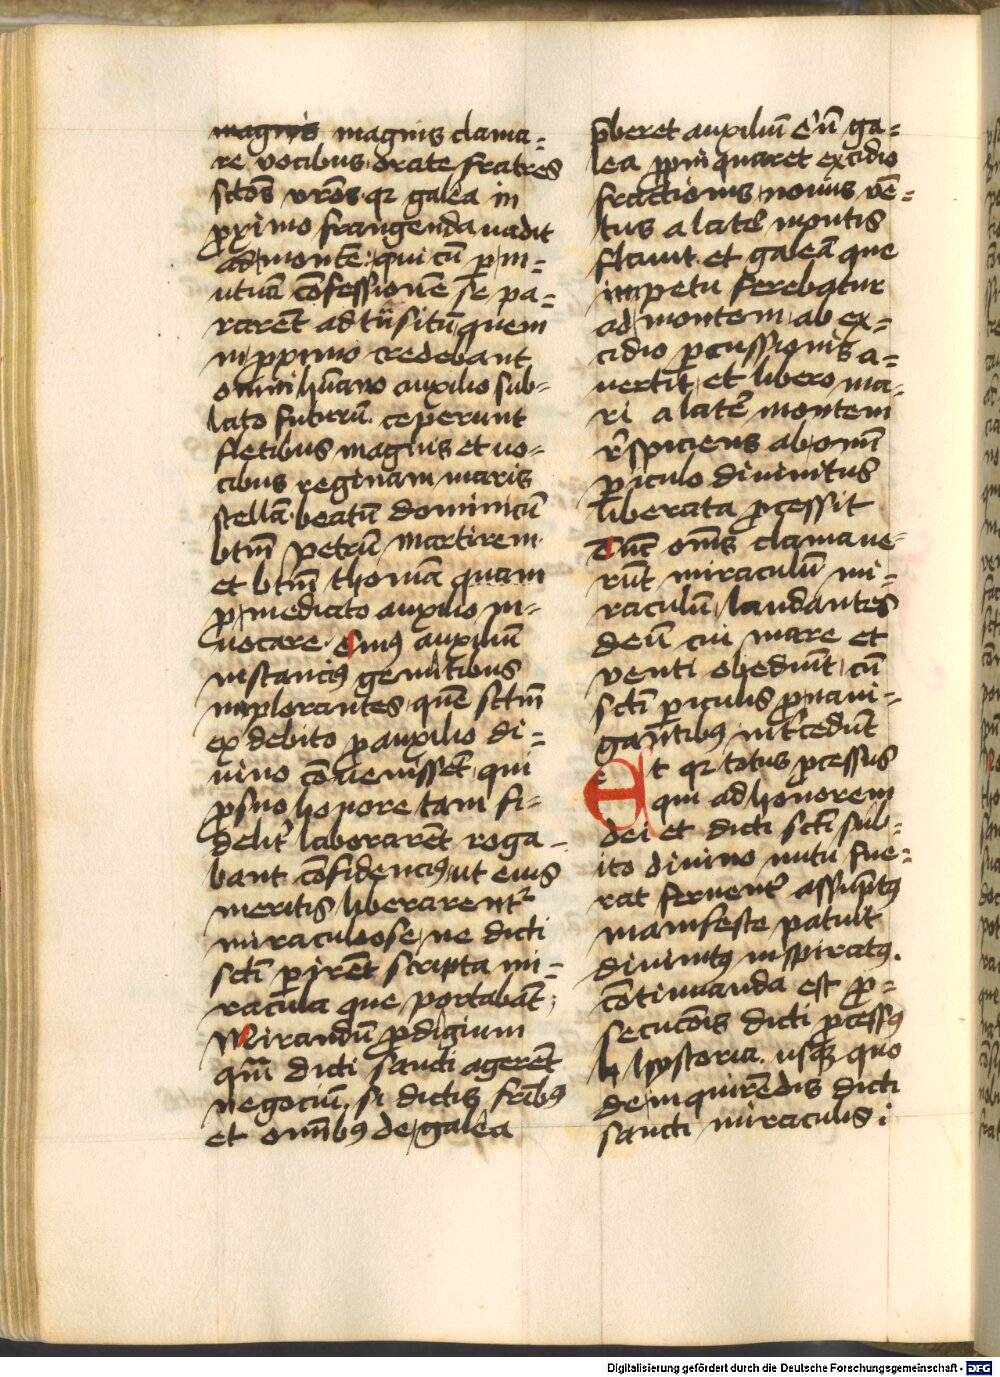 magnis magnis clama=
re vocibus orate fratres
sctōs vrōs qz galea in
ꝓximo frangenda uadit
ad montē qui cū ꝑ m=
utuā cōfessionē se pa=
rarēt ad trāsitū quem
in ꝓximo credebant
omni hūano auxilio sub=
lato futurū ceperunt
fletibus magnis et uo=
cibus reginam maris
stellā beatū dominicū
btm̄ petrū martirem
et btm̄ thomā quam
ꝓ medicato auxilio in=
uocare eius auxiliū
instancius gemitibus
implorantes quē sctm̄
ex debito ꝓ auxilio di=
uino cōuenisset qui
ꝓ suo honore tam fi=
delit' laborarēt roga=
bant cōfidencius ut eius
meritis liberarent'
miraculose ne dicti
scti ꝑirēt scripta mi=
racula que portabāt
Mirandū ꝓdigium
qm̄ dicti sancti agerēt
negociū si dictis fr̄ibꝫ
et omībꝫ de galea
p̄beret auxiliū Cū ga=
lea ꝓpinquaret excidio
fractionis nouus vē=
tus a late' montis
flauit et galeā que
impetu ferebatur
ad montem ab ex=
cidio ꝑcussionis a=
uertit et libero ma=
ri a late' montem
respiciens ab omni
ꝑiculo diuinitus
liberata ꝓcessit
Tūc om̄s clamaue=
rūt miraculū mi=
raculū laudantes
deū cui mare et
venti obediūt cū
scti ꝑiculis ꝑ naui=
gantibus int'cedūt
Et qz totus ꝓcessus
qui ad honorem
dei et dicti scti sub=
ito diuino nutu fue=
rat feruent' assūptus
manifeste patuit
diuinitus inspiratus
cōtinuanda est ꝓ=
secucōis dicti ꝓcessus
h hystoria usqꝫ quo
de inquirēdis dicti
sancti miraculis i
Digitalisierung gefördert durch die Deutsche Forschungsgemeinschaft - DFG